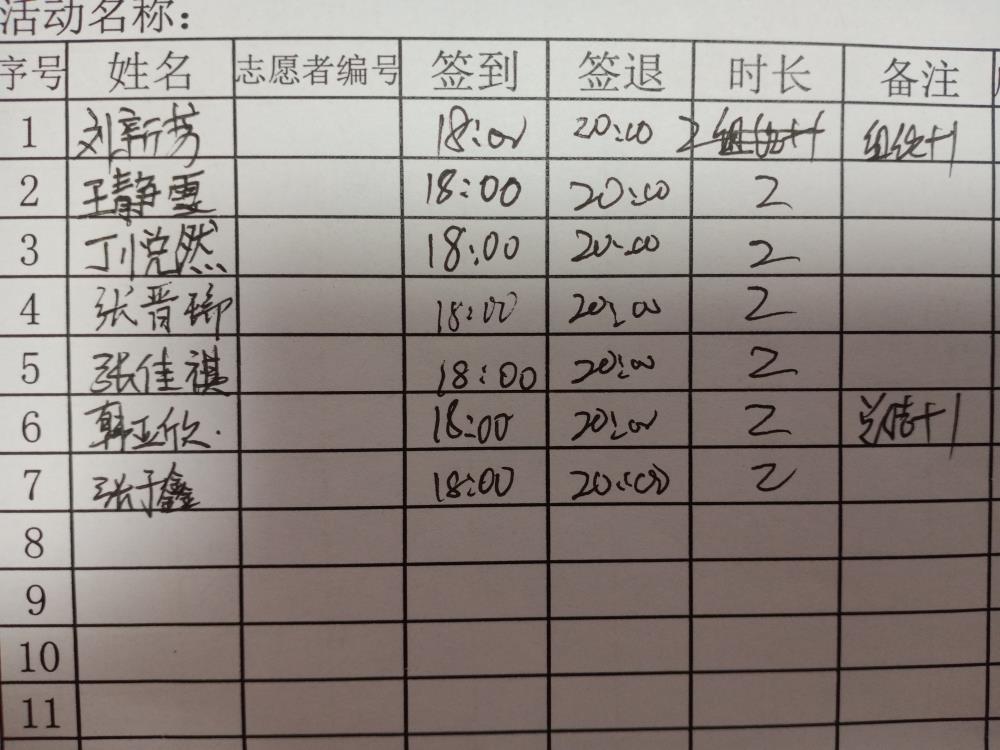 活动名称：
序号 姓名 志愿者编号 签到 签退 时长 备注
1 刘新芳 18:00 20:00 2 组织+1
2 王静雯 18:00 20:00 2
3 丁悦然 18:00 20:00 2
4 张晋瑜 18:00 20:00 2
5 张佳祺 18:00 20:00 2
6 韩亚欣 18:00 20:00 2 总结+1
7 张于鑫 18:00 20:00 2
8
9
10
11